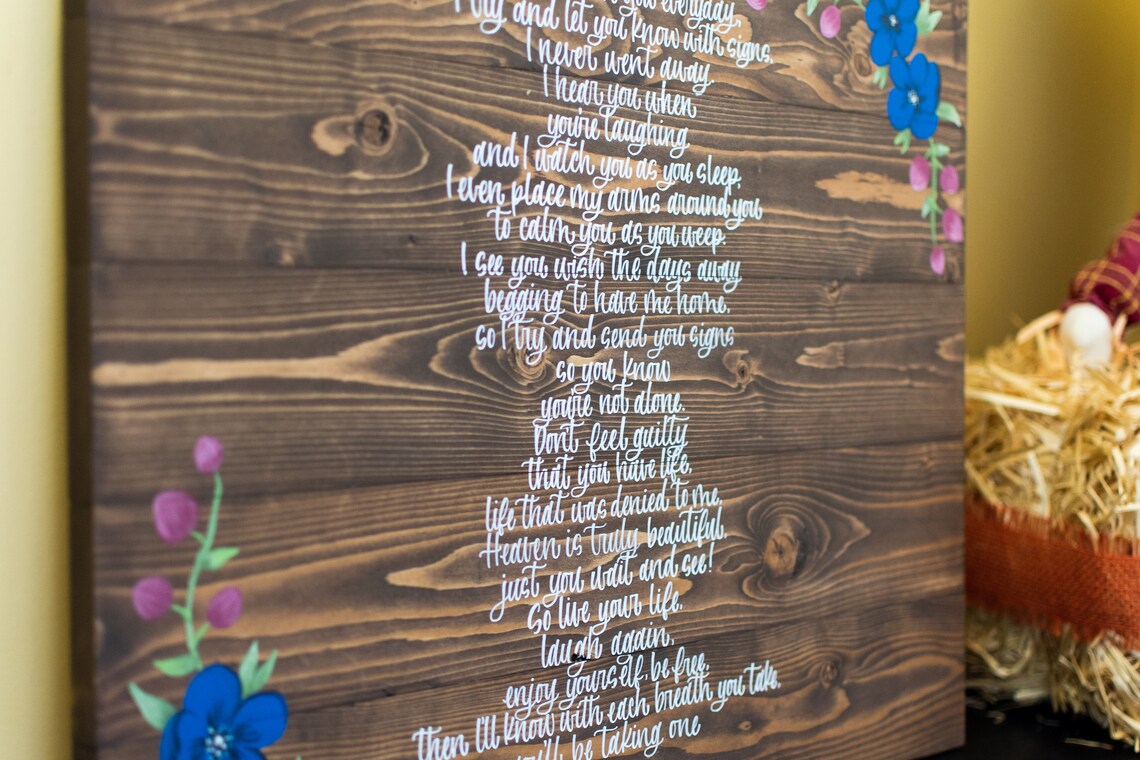 you everyday,
I try and let you know with signs,
I never went away.
I hear you when
you're laughing
and I watch you as you sleep,
I even place my arms around you
to calm you as you weep.
I see you wish the days away
begging to have me home,
so I try and send you signs
so you know
you're not alone.
Don't feel guilty
that you have life,
life that was denied to me.
Heaven is truly beautiful,
just you wait and see!
So live your life,
laugh again,
enjoy yourself, be free,
then I'll know with each breath you take,
you'll be taking one